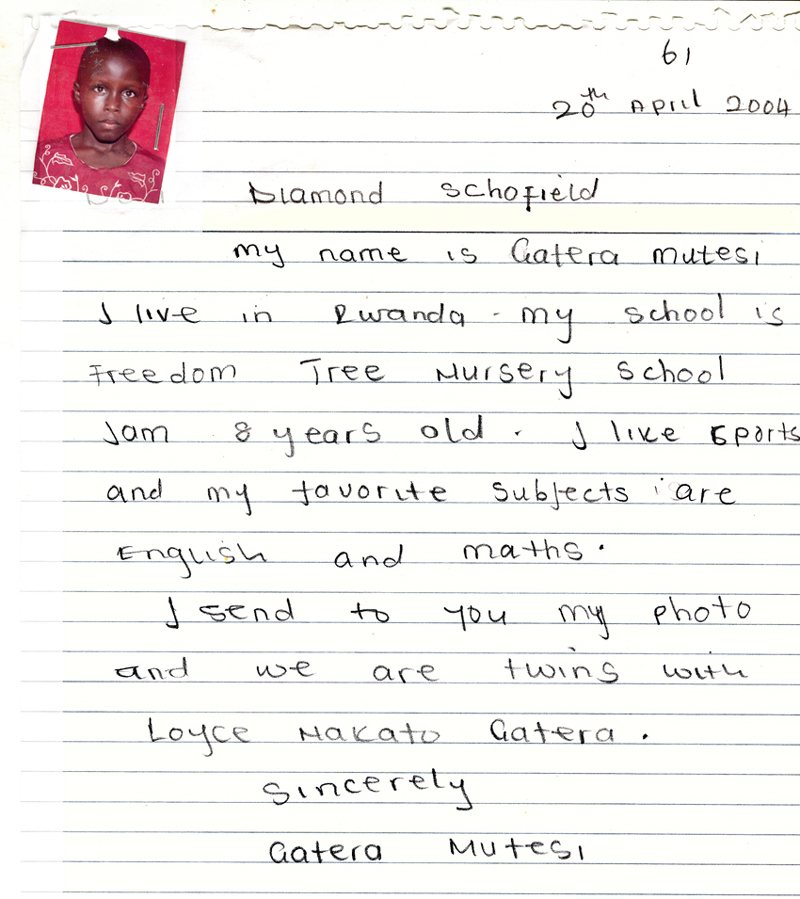 61
20th April 2004
Diamond Schofield
my name is Gatera mutesi
I live in Rwanda. my school is
Freedom Tree Nursery school
Iam 8 years old. I like sports
and my favorite subjects are
English and maths.
I send to you my photo
and we are twins with
Loyce Nakato Gatera.
Sincerely
Gatera Mutesi